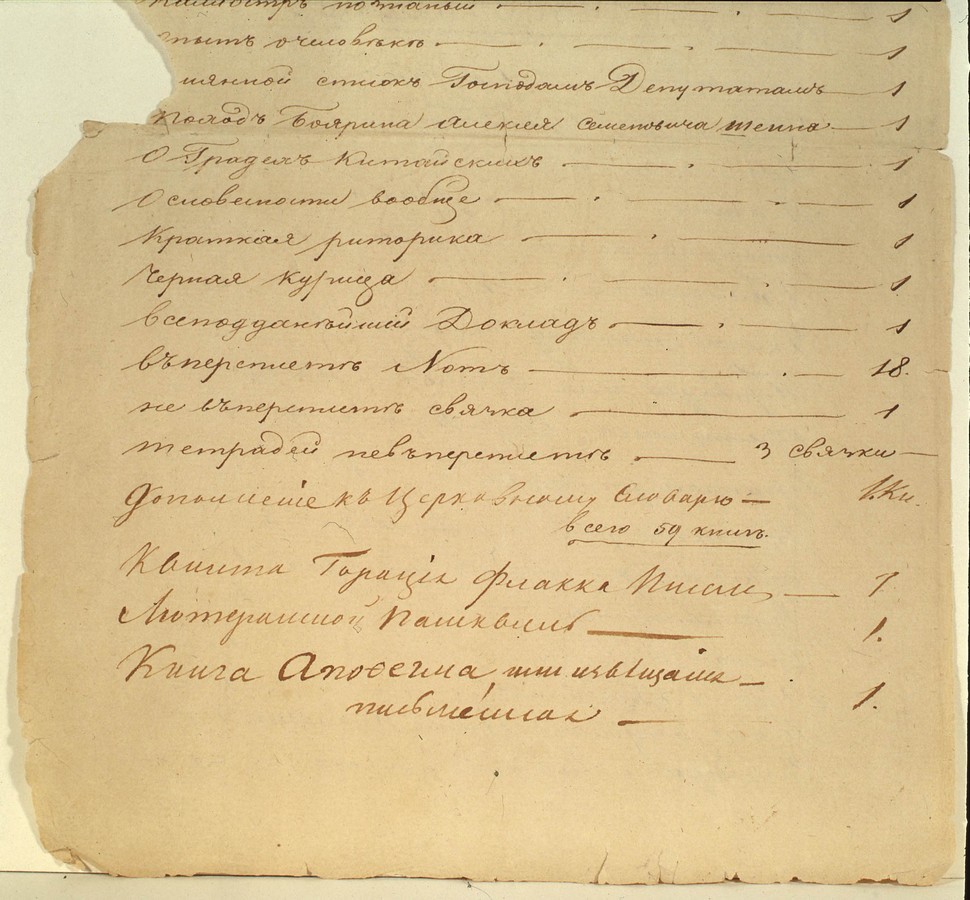 Калиостръ познаный — 1
пытъ о человѣкѣ — 1
менной списокъ Господамъ Депутатамъ — 1
Походъ Боярина Алексея Семеновича Шеина — 1
О Градехъ Китайскихъ — 1
О словесности вообще — 1
Краткая риторика — 1
Черная курица — 1
Всеподданѣйшій Докладъ — 1
въ переплетѣ Нотъ — 18.
не въ переплетѣ связка — 1
тетрадей не въ переплетѣ — 3 связки —
Дополненіе къ Церковному Словарю — 1. Кн.
всего 59 книгъ.
Квинта Горація Флакка — 1
Лютеранской Пашквиль — 1.
Книга Апоѳегма, или
письменная — 1.